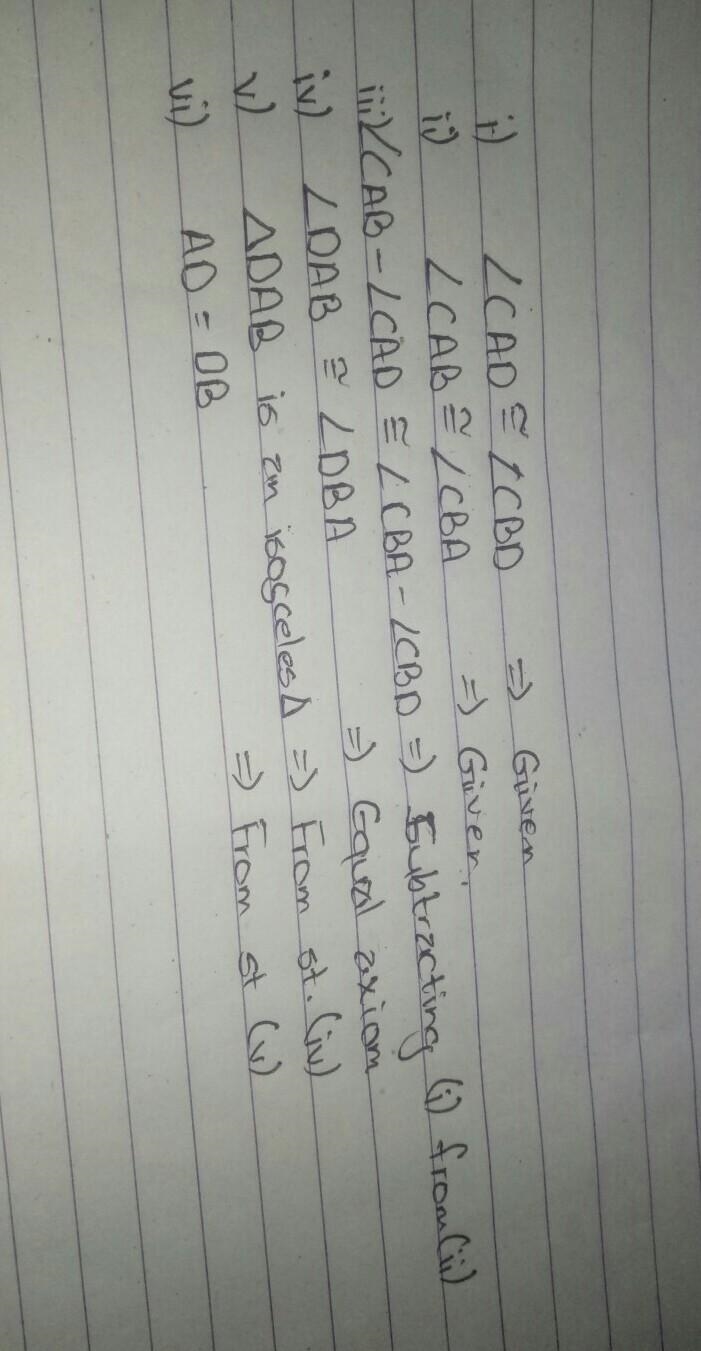 i) ∠CAD ≅ ∠CBD ⇒ Given
ii) ∠CAB ≅ ∠CBA ⇒ Given.
iii) ∠CAB - ∠CAD ≅ ∠CBA - ∠CBD ⇒ Subtracting (i) from (ii)
iv) ∠DAB ≅ ∠DBA ⇒ Equal axiom
v) ΔDAB is an isosceles Δ ⇒ From st. (iv)
vi) AD = DB ⇒ From st (v)